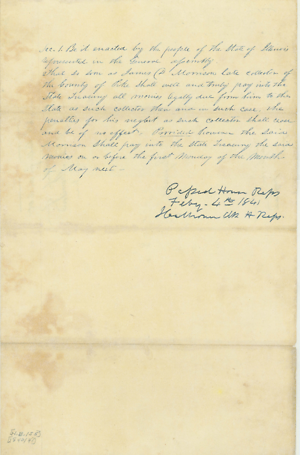 Sec. 1. Be it enacted by the people of the State of Illinois
represented in the General Assembly
That so soon as James M. Morrison late collector of
the County of Pike Shall well and truly pay into the
State Treasury all monies legally due from him to the
State as such collector then and in such case, the
penalties for his neglect as such collector shall cease
and be of no effect. Provided however the Said
Morrison Shall pay into the State Treasury the said
monies on or before the first Monday of the Month
of May next.
Passed House Reps
Feby. 4th 1841
Clk H. Reps.